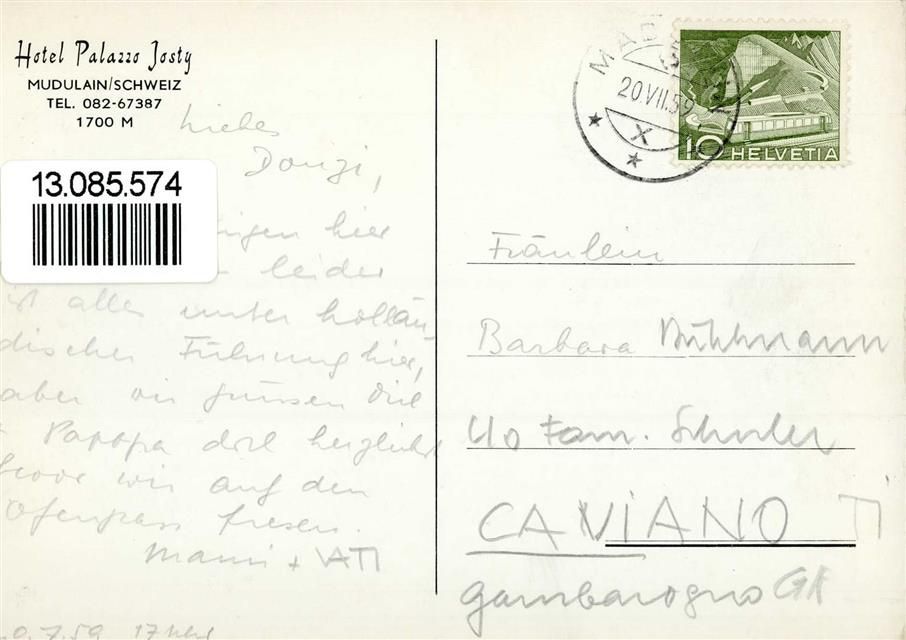 Hotel Palazzo Josty
MUDULAIN/SCHWEIZ
TEL. 082-67387
1700 M
Liebes
Donzi,
13.085.574
hier
leider
ist alles unter hollän-
discher Führung hier,
aber wir grüssen Dich
+ Pappa herzlich
bevor wir auf den
Ofenpass fresen.
Mami + VATI
.7.59 17 Uhr
20.VII.59
X
10 HELVETIA
Fräulein
Barbara Bühlmann
c/o Fam. Schuler
CAVIANO TI
Gambarogno